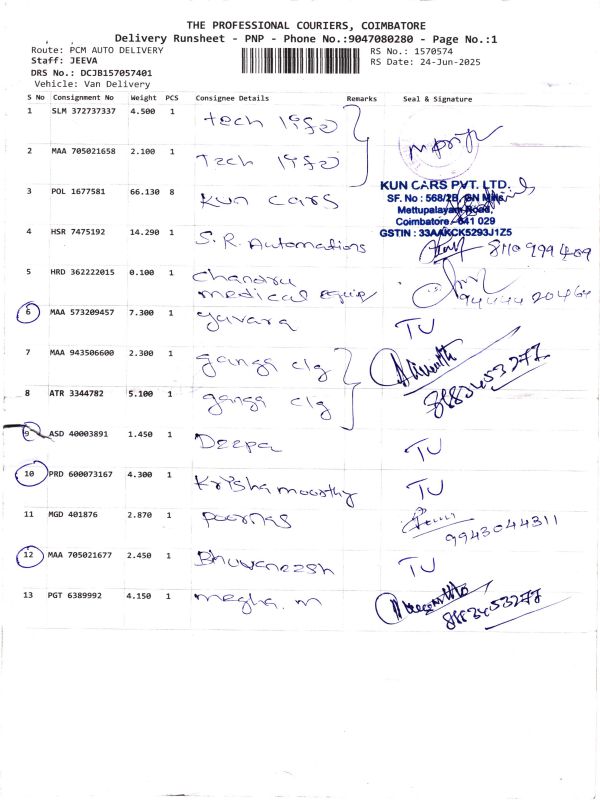 THE PROFESSIONAL COURIERS, COIMBATORE
Delivery Runsheet - PNP - Phone No.:9047080280 - Page No.:1
Route: PCM AUTO DELIVERY
RS No.: 1570574
Staff: JEEVA
RS Date: 24-Jun-2025
DRS No.: DCJB157057401
Vehicle: Van Delivery
S No Consignment No Weight PCS Consignee Details Remarks Seal & Signature
1 SLM 372737337 4.500 1 tech life
2 MAA 705021658 2.100 1 Tech life
3 POL 1677581 66.130 8 Kun cars
KUN CARS PVT. LTD.
SF. No : 568/2B, GN Mills,
Mettupalayam Road,
Coimbatore - 641 029
GSTIN : 33AAKCK5293J1Z5
4 HSR 7475192 14.290 1 S.R. Automations
5 HRD 362222015 0.100 1 Chandru
medical equip
6 MAA 573209457 7.300 1 yuvara TU
7 MAA 943506600 2.300 1 ganga clg
8883453277
8 ATR 3344782 5.100 1 ganga clg
9 ASD 40003891 1.450 1 Deepa TU
10 PRD 600073167 4.300 1 Krishamoorthy TU
11 MGD 401876 2.870 1 Poornas 9943044311
12 MAA 705021677 2.450 1 Bhuvaneesh TU
13 PGT 6389992 4.150 1 megha. m 8883453277